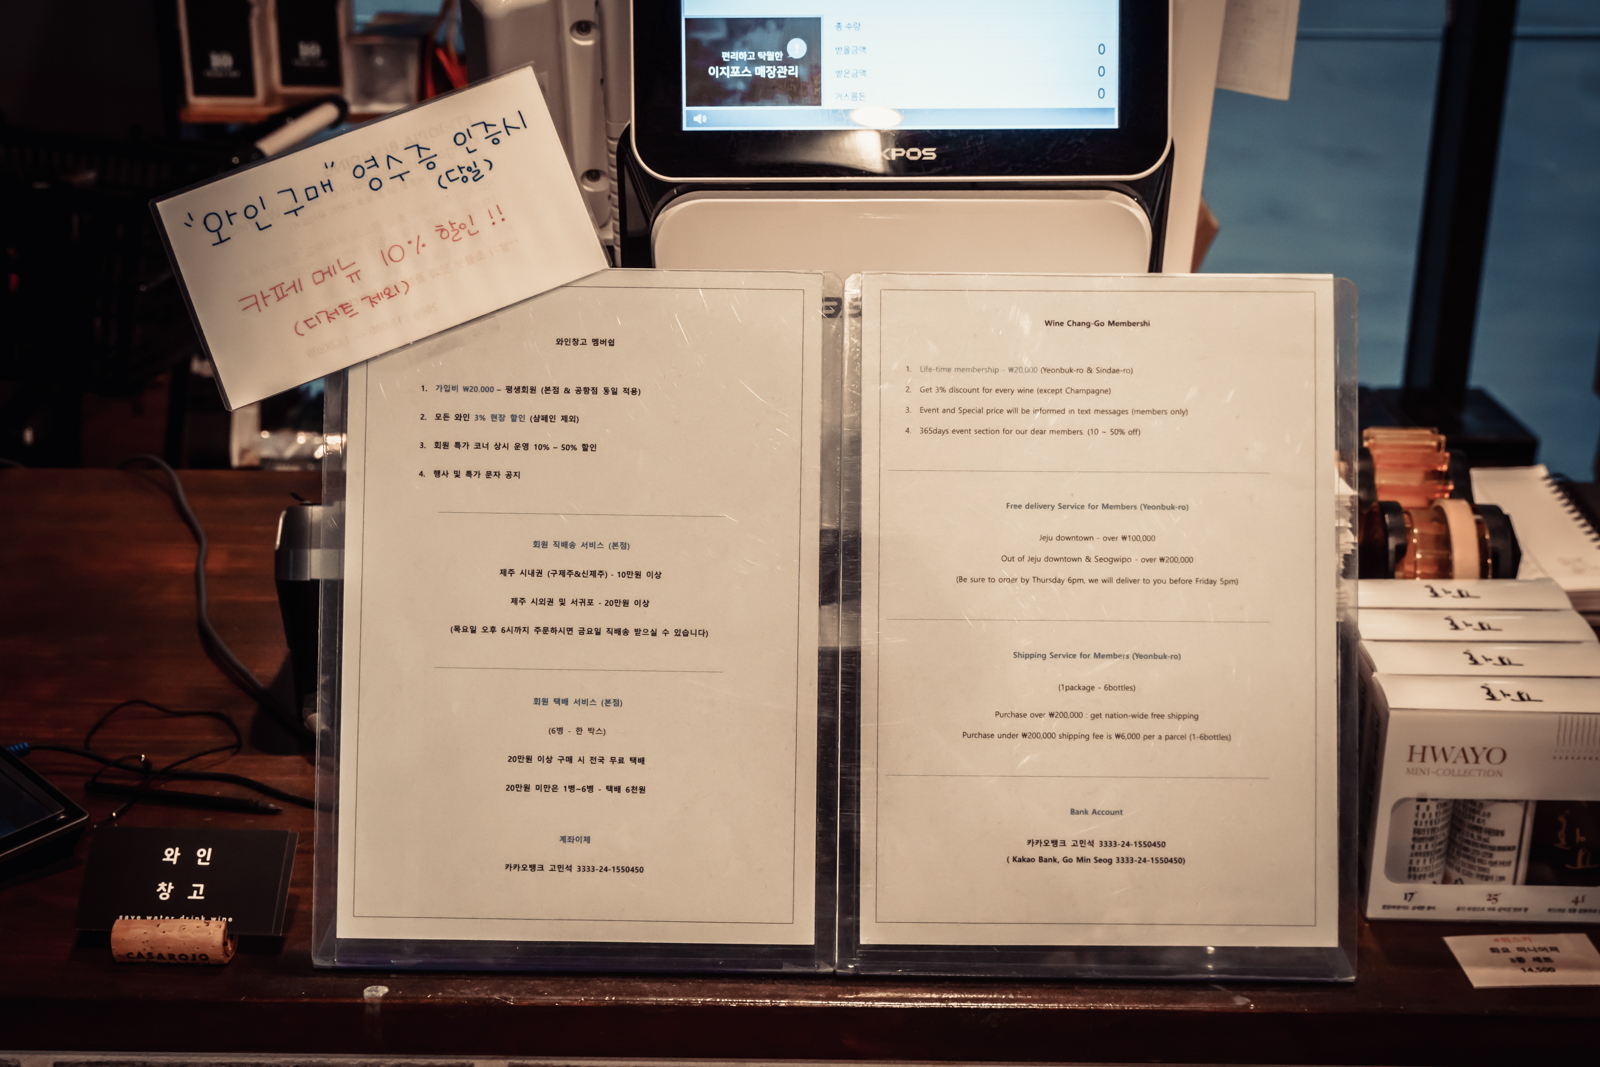 편리하고 탁월한
이지포스 매장관리
총 수량
받을금액 0
받은금액 0
거스름돈 0
KPOS
"와인구매" 영수증 인증시
(당일)
카페 메뉴 10% 할인!!
(디저트 제외)
와인창고 멤버쉽
1. 가입비 ₩20,000 – 평생회원 (본점 & 공항점 동일 적용)
2. 모든 와인 3% 현장 할인 (샴페인 제외)
3. 회원 특가 코너 상시 운영 10% – 50% 할인
4. 행사 및 특가 문자 공지
회원 직배송 서비스 (본점)
제주 시내권 (구제주&신제주) - 10만원 이상
제주 시외권 및 서귀포 - 20만원 이상
(목요일 오후 6시까지 주문하시면 금요일 직배송 받으실 수 있습니다)
회원 택배 서비스 (본점)
(6병 - 한 박스)
20만원 이상 구매 시 전국 무료 택배
20만원 미만은 1병~6병 - 택배 6천원
계좌이체
카카오뱅크 고민석 3333-24-1550450
Wine Chang-Go Membershi
1. Life-time membership - ₩20,000 (Yeonbuk-ro & Sindae-ro)
2. Get 3% discount for every wine (except Champagne)
3. Event and Special price will be informed in text messages (members only)
4. 365days event section for our dear members. (10 ~ 50% off)
Free delivery Service for Members (Yeonbuk-ro)
Jeju downtown - over ₩100,000
Out of Jeju downtown & Seogwipo - over ₩200,000
(Be sure to order by Thursday 6pm, we will deliver to you before Friday 5pm)
Shipping Service for Members (Yeonbuk-ro)
(1package - 6bottles)
Purchase over ₩200,000 : get nation-wide free shipping
Purchase under ₩200,000 shipping fee is ₩6,000 per a parcel (1-6bottles)
Bank Account
카카오뱅크 고민석 3333-24-1550450
( Kakao Bank, Go Min Seog 3333-24-1550450)
와 인
창 고
save water drink wine
CASAROJO
화요
화요
화요
화요
HWAYO
MINI-COLLECTION
17 25 41
화요 미니어처
3종 세트
14,500